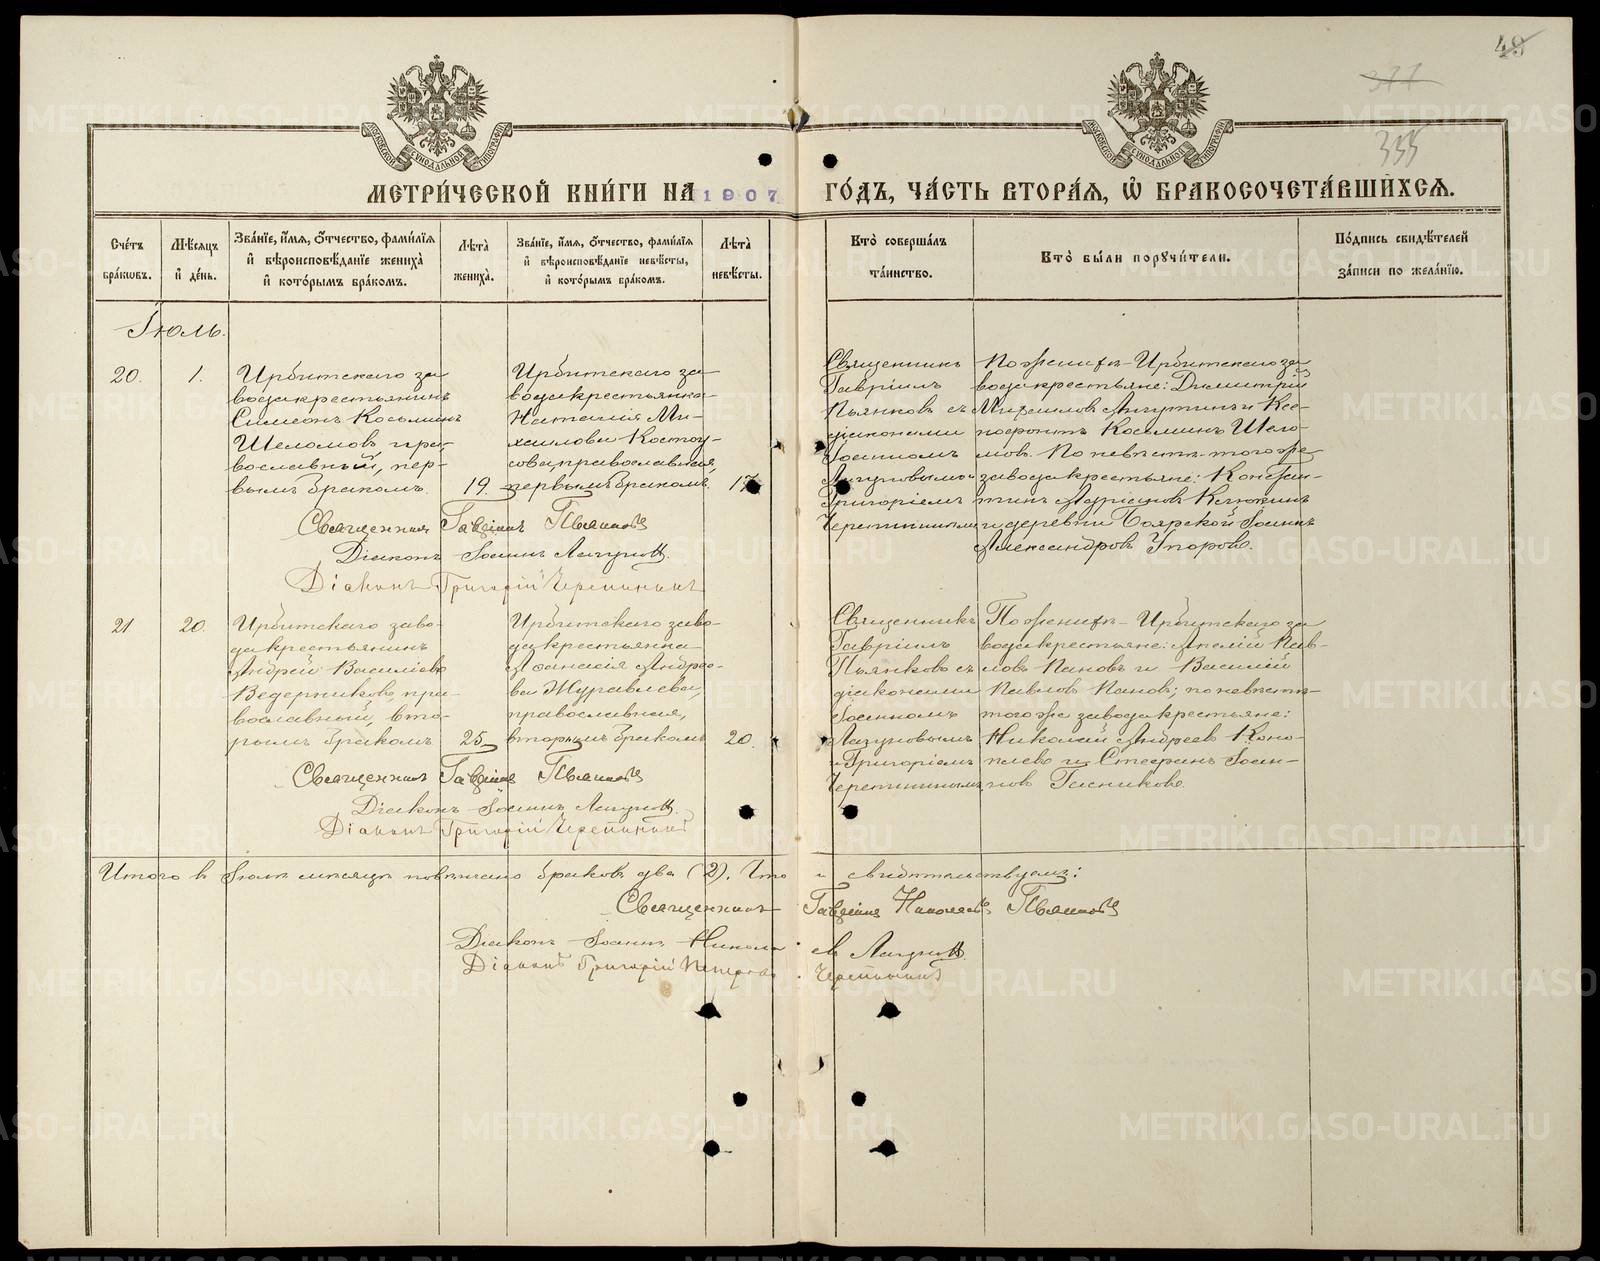 49
377
335
МЕТРИ́ЧЕСКОЙ КНИ́ГИ НА 1907 ГО́ДЪ, ЧА́СТЬ ВТОРА́Я, Ѡ БРАКОСОЧЕТА́ВШИХСЯ.
Сче́тъ бра́ковъ.
Мѣ́сяцъ и де́нь.
Зва́нїе, и́мя, о́тчество, фами́лїя и вѣроисповѣ́данїе жениха̀ и кото́рымъ бра́комъ.
Лѣта̀ жениха̀.
Зва́нїе, и́мя, о́тчество, фами́лїя и вѣроисповѣ́данїе невѣ́сты, и кото́рымъ бра́комъ.
Лѣта̀ невѣ́сты.
Кто̀ соверша́лъ та́инство.
Кто̀ бы́ли поручи́тели.
По́дпись свидѣ́телей за́писи по жела́нїю.
Іюль.
20.
1.
Ирбитскаго за-
вода крестьянинъ
Симеонъ Косьминъ
Шеломовъ, пра-
вославный, пер-
вымъ бракомъ.
19.
Ирбитскаго за-
вода крестьянка
Наталія Ми-
хаилова Костоу-
сова, православная,
первымъ бракомъ.
17
Священникъ
Гавріилъ
Пьянковъ съ
діаконами
Іоанномъ
Лагуновымъ и
Григоріемъ
Черепанинымъ
По женихѣ Ирбитскаго за-
вода крестьяне: Димитрій
Михаиловъ и Ксе-
нофонтъ Косьминъ Шело-
мовъ. По невѣстѣ того же
завода крестьяне: Констан-
тинъ
и деревни Боярской Іоаннъ
Александровъ Упоровъ.
Священникъ Гавріилъ Пьянковъ
Діаконъ Іоаннъ Лагуновъ.
Діаконъ Григорій Черепанинъ
21
20.
Ирбитскаго заво-
да крестьянинъ
Андрей Василіевъ
Ведерниковъ, пра-
вославный, вто-
рымъ бракомъ
25
Ирбитскаго заво-
да крестьянка
Аѳанасія Андрее-
ва Журавлева,
православная,
вторымъ бракомъ
20.
Священникъ
Гавріилъ
Пьянковъ съ
діаконами
Іоанномъ
Лагуновымъ
и Григоріемъ
Черепанинымъ
По женихѣ Ирбитскаго за-
вода крестьяне: Пав-
ловъ Пановъ и Василій
Павловъ Пановъ; по невѣстѣ
того же завода крестьяне:
Николай Андреевъ Коно-
плевъ и Стефанъ Іоан-
новъ
Священникъ Гавріилъ Пьянковъ
Діаконъ Іоаннъ Лагуновъ.
Діаконъ Григорій Черепанинъ
Итого въ Іюлѣ мѣсяцѣ повѣнчано браковъ два (2). Что и свидѣтельствуемъ:
Священникъ Гавріилъ Николаевъ Пьянковъ
Діаконъ Іоаннъ Николаевъ Лагуновъ.
Діаконъ Григорій Петровъ Черепанинъ